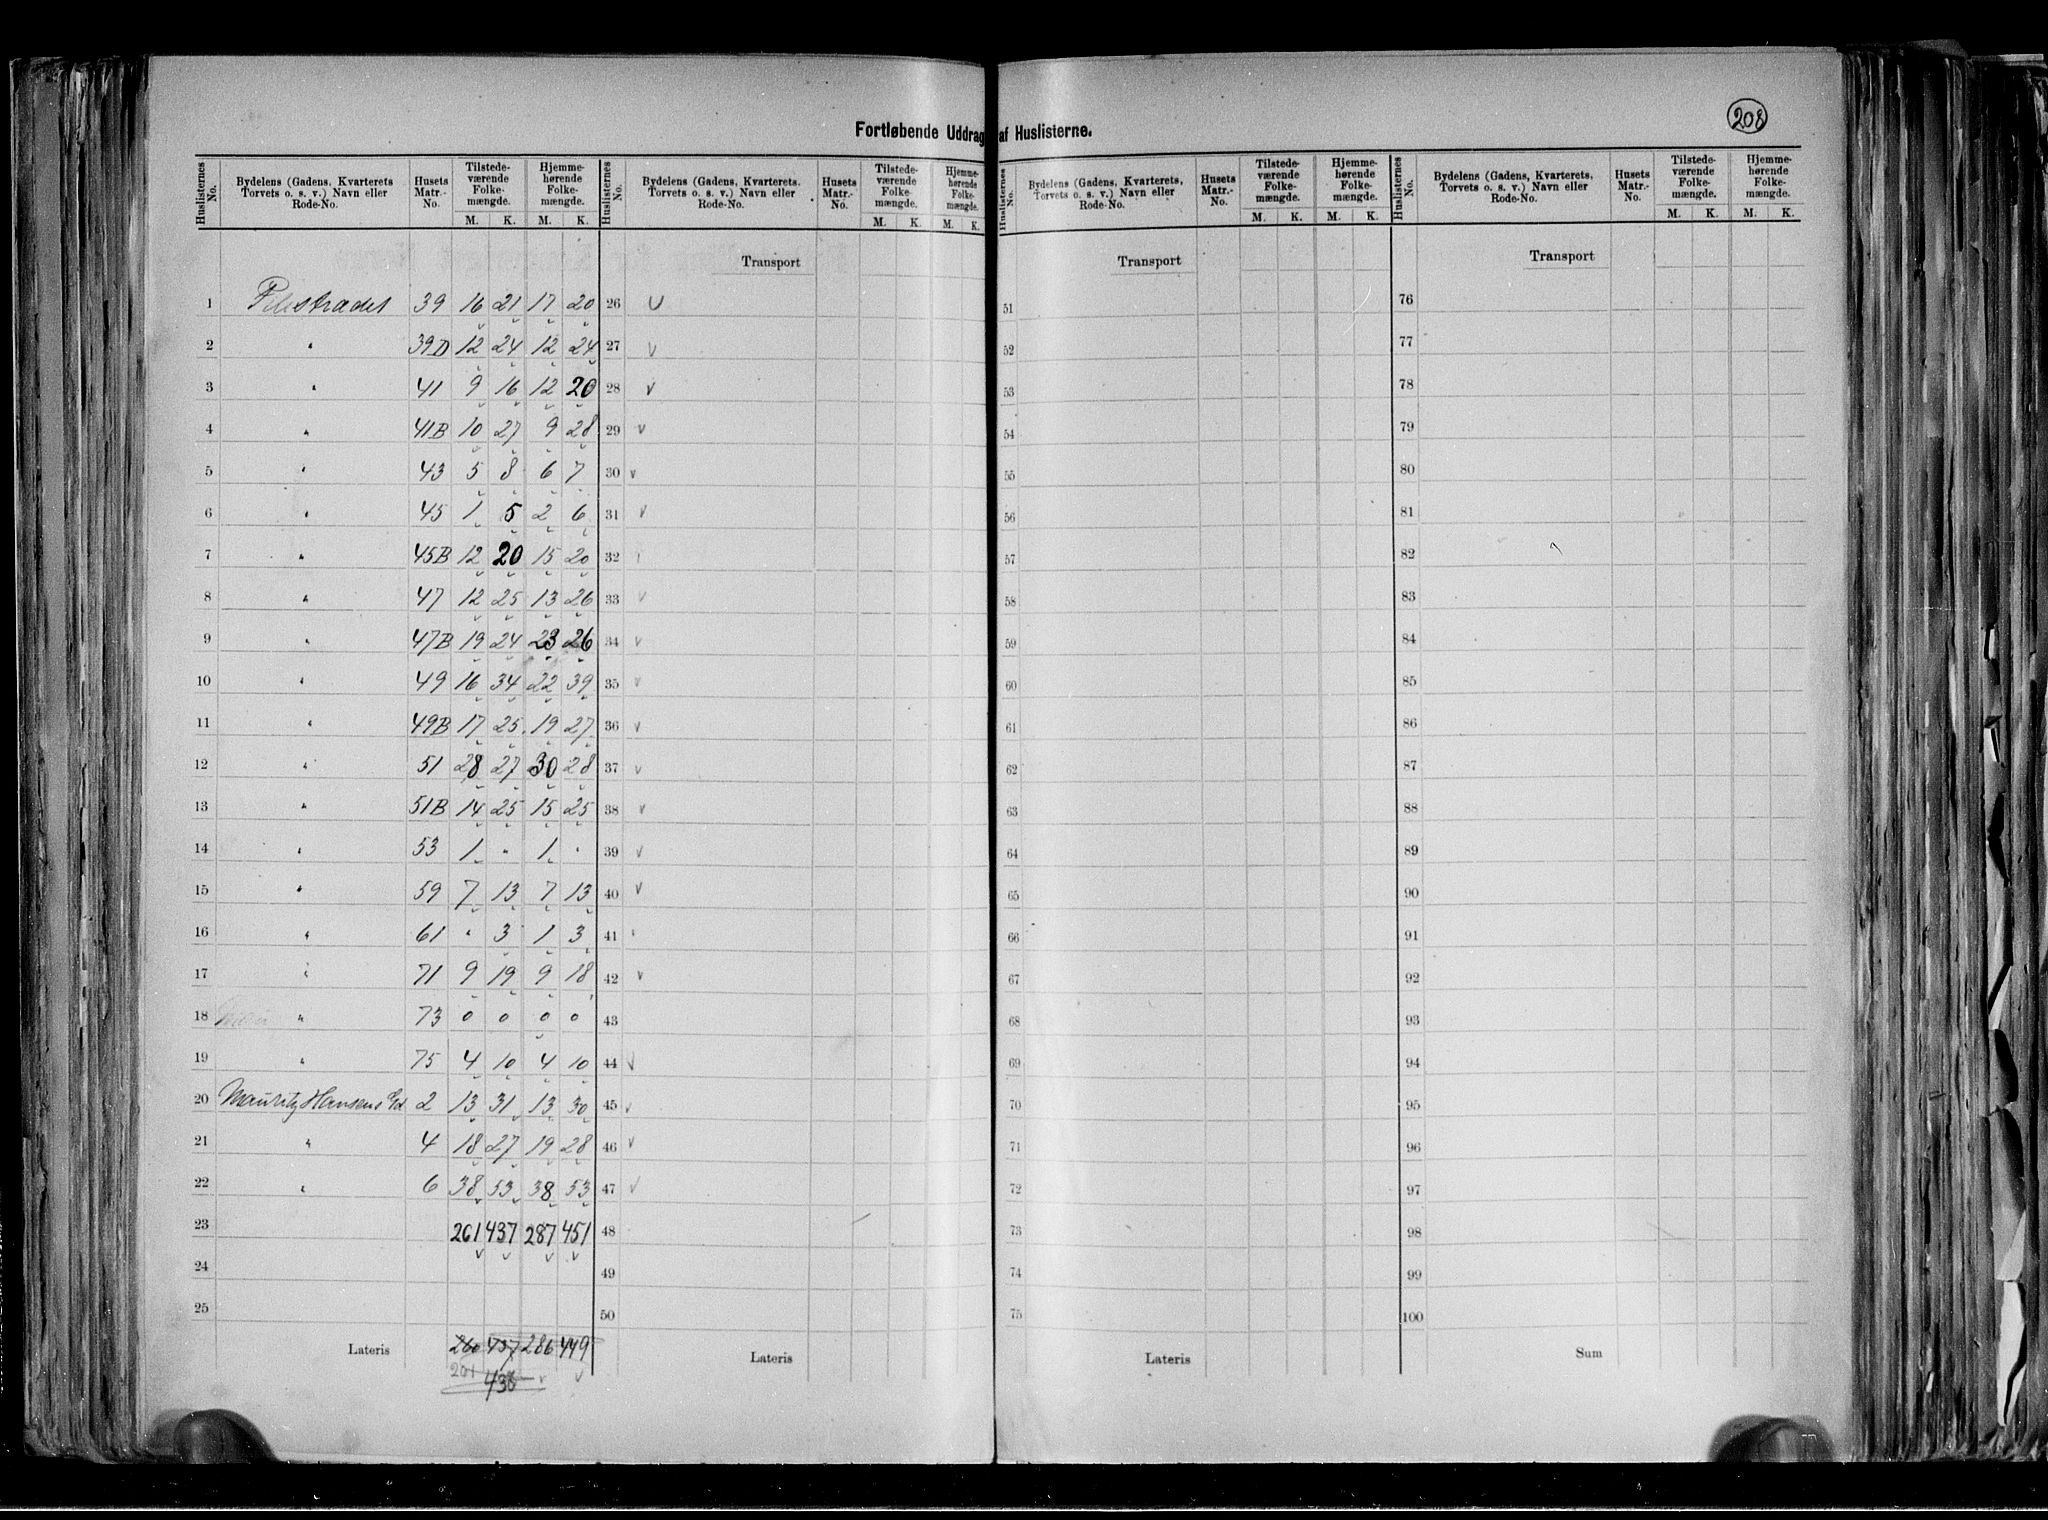 208
Fortløbende Uddrag af Huslisterne.
Huslisternes No. | Bydelens (Gadens, Kvarterets, Torvets o. s. v.) Navn eller Rode-No. | Husets Matr.-No. | Tilstedeværende Folkemængde. M. K. | Hjemmehørende Folkemængde. M. K.
Huslisternes No. | Bydelens (Gadens, Kvarterets, Torvets o. s. v.) Navn eller Rode-No. | Husets Matr.-No. | Tilstedeværende Folkemængde. M. K. | Hjemmehørende Folkemængde. M. K.
Huslisternes No. | Bydelens (Gadens, Kvarterets, Torvets o. s. v.) Navn eller Rode-No. | Husets Matr.-No. | Tilstedeværende Folkemængde. M. K. | Hjemmehørende Folkemængde. M. K.
Huslisternes No. | Bydelens (Gadens, Kvarterets, Torvets o. s. v.) Navn eller Rode-No. | Husets Matr.-No. | Tilstedeværende Folkemængde. M. K. | Hjemmehørende Folkemængde. M. K.
Transport Transport Transport
1 Pilestrædet 39 16 21 17 20 26 51 76
2 " 39D 12 24 12 24 27 52 77
3 " 41 9 16 12 20 28 53 78
4 " 41B 10 27 9 28 29 54 79
5 " 43 5 8 6 7 30 55 80
6 " 45 1 5 2 6 31 56 81
7 " 45B 12 20 15 20 32 57 82
8 " 47 12 25 13 26 33 58 83
9 " 47B 19 24 23 26 34 59 84
10 " 49 16 34 22 39 35 60 85
11 " 49B 17 25 19 27 36 61 86
12 " 51 28 27 30 28 37 62 87
13 " 51B 14 25 15 25 38 63 88
14 " 53 1 " 1 " 39 64 89
15 " 59 7 13 7 13 40 65 90
16 " 61 " 3 1 3 41 66 91
17 " 71 9 19 9 18 42 67 92
18 " 73 0 0 0 0 43 68 93
19 " 75 4 10 4 10 44 69 94
20 Mauritz Hansens Gd 2 13 31 13 30 45 70 95
21 " 4 18 27 19 28 46 71 96
22 " 6 38 53 38 53 47 72 97
23 261 437 287 451 48 73 98
24 49 74 99
25 50 75 100
Lateris 260 437 286 449 Lateris Lateris Sum
261 438